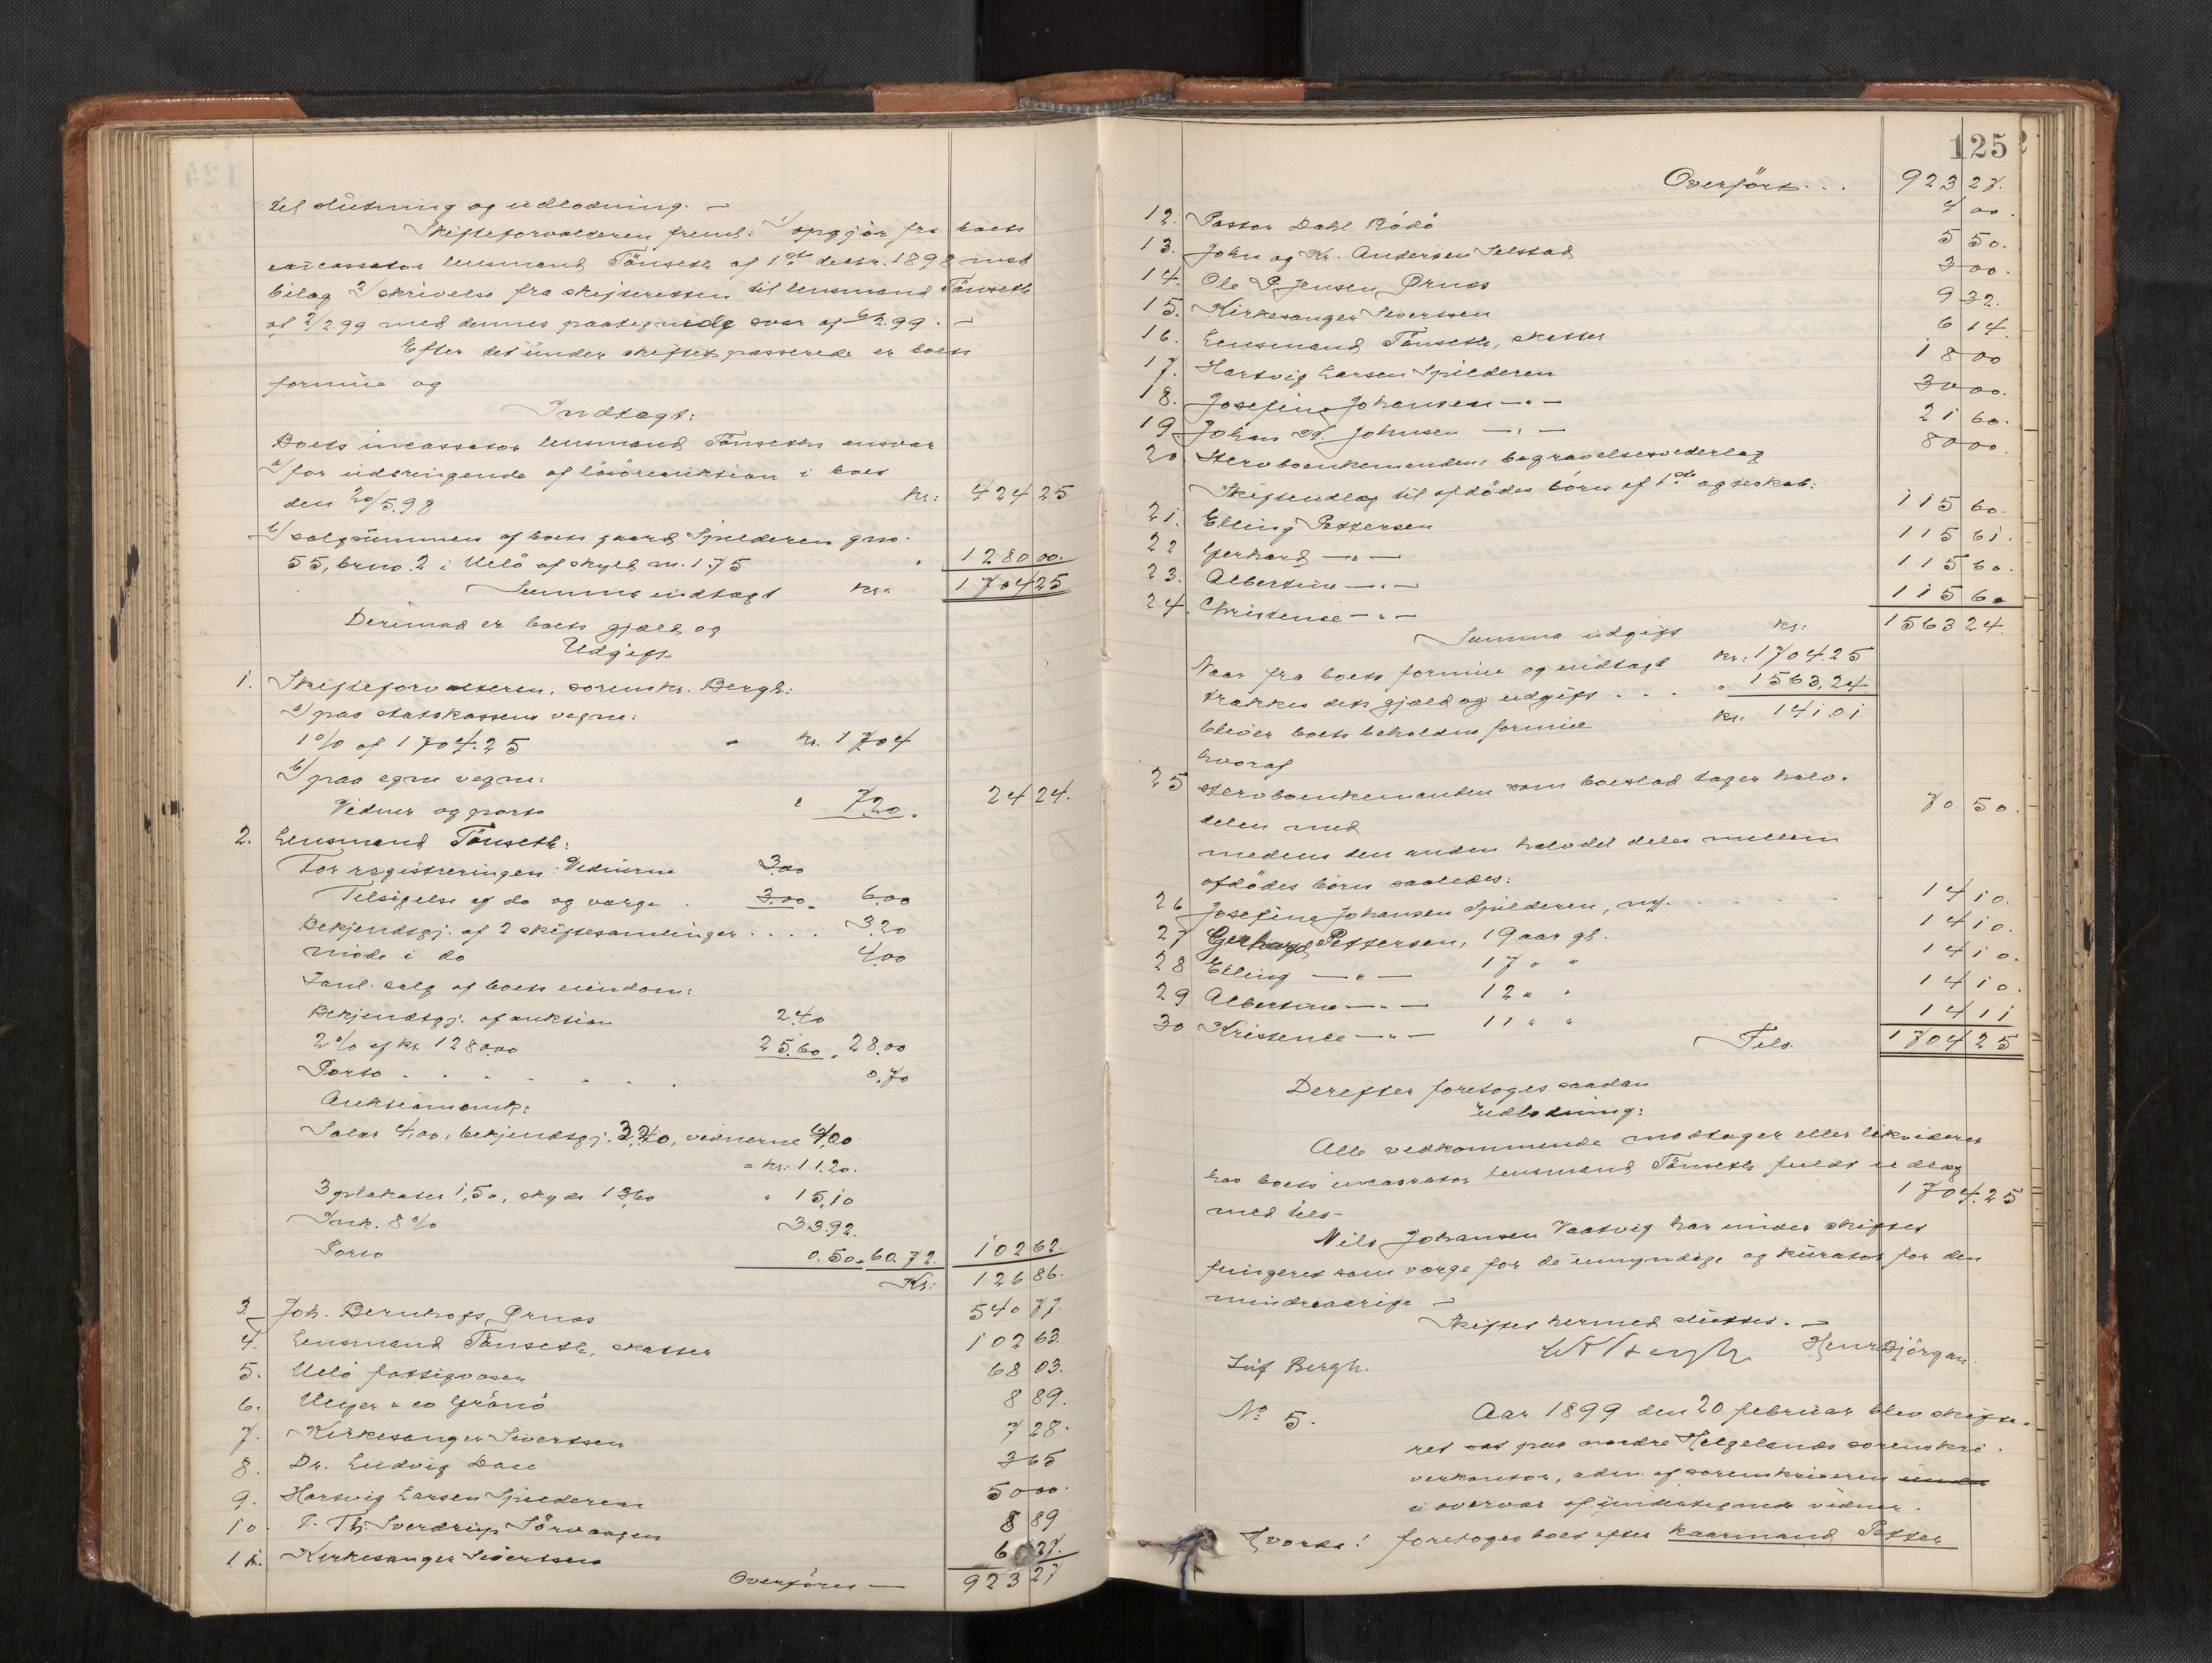 til slutning og udlodning. –
Skifteforvalteren freml: 1/ opgjør fra boets
incassator lensmand Tönseth af 1ste decbr. 1898 med
bilag 2/ skrivelse fra skifteretten til lensmand Tönseth
af 2/2.99 med dennes paategnede svar af 6/2.99. –
Efter det under skiftet passerede er boets
formue og
Indtægt:
Boets incassator lensmand Tönseths ansvar
a/ for udbringende af lösöreauktion i boet
den 20/5.98 Kr: 424 25
b/ salgsummen af boets gaard Spilderen gno.
55, brno. 2 i Melö af skyld m. 1.75 " 1280 00.
Summa indtægt Kr: 1704 25
Derimod er boets gjæld og
Udgift.
1. Skifteforvalteren, sorenskr. Bergh:
a/ paa statskassens vegne:
1% af 1704.25 - Kr. 17 04
b/ paa egne vegne:
Vidner og porto " 7.20. 24 24.
2. Lensmand Tönseth:
For registreringen: Vidnerne 3.00
Tilsigelse af do og værge . 3,00. 6.00
Bekjendtgj. af 2 skiftesamlinger . . . . 3.20
möde i do 4.00
Ianl. salg af boets eiendom:
Bekjendtgj. af auktion 2.40
2% af kr. 1280.00 25.60. 28.00
Porto . . . . . . . 0.70
Auktionsomk:
Salær 4,00, bekjendtgj. 3,20, vidnerne 4,00
= Kr: 11.20.
3 plakater 1,50, skyds 13.60 " 15,10
Ink. 8% 33.92.
Porto 0.50. 60.72. 102 62.
Kr: 126 86.
3. Joh. Bernhoft, Ørnæs 540 77.
4. Lensmand Tönseth, skatter 102 63.
5. Melö fattigvæsen 68 03.
6. Meyer & co Grönö 8 89.
7. Kirkesanger Sivertsen 7 28.
8. Dr. Ludvig Daae 3 65
9. Hartvig Larsen Spilderen 50 00.
10. P. Th. Sverdrup Sörvaagen 8 89
11. Kirkesanger Sivertsen 6 27.
Overföres — 923 27
125
Overfört . . . 923 27.
12. Pastor Dahl Rödö 4 00.
13. John og Kr. Andersen Selstad 5 50.
14. Ole P. Jensen, Ørnæs 3 00.
15. Kirkesanger Sivertsen 9 32.
16. Lensmand Tönseth, skatter 6 14.
17. Hartvig Larsen Spilderen 18 00
18. Josefine Johansen —"— 30 00.
19 Johan M. Johnsen —"— 21 60.
20. Stervboenkemanden, begravelsesvederlag 80 00.
Skifteudlæg til afdödes börn af 1ste ægteskab:
21. Elling Pettersen 115 60.
22 Gerhard —"— 115 61.
23. Albertine —"— 115 60.
24. Christense —"— 115 60
Summa udgift Kr: 1563 24.
Naar fra boets formue og indtægt Kr: 1704.25
trækkes dets gjæld og udgift . . . " 1563,24
bliver boets beholdne formue Kr. 141 01
hvoraf
25 stervboenkemanden som boeslod tager halv-
delen med 70. 50.
medens den anden halvdel deles mellem
afdödes börn saaledes:
26 Josefine Johansen Spilderen, myn. . . . 14 10.
27 Gerhard Pettersen, 19 aar gl. 14 10.
28 Elling —"— 17 " " 14 10.
29 Albertine —"— 12 " " 14 10.
30 Kristense —"— 11 " " 14 11
Tils. 1704 25
Derefter foretoges saadan
udlodning:
Alle vedkommende modtager eller likviderer
hos boets incassator lensmand Tönseth fuldt udlæg
med tils- 1704.25
Nils Johansen Vaatvig har under skiftet
fungeret som værge for de umyndige og kurator for den
mindreaarige –
Skiftet hermed sluttet. –
Leif Bergh. Henr Björgan.
No 5.
Aar 1899 den 20 februar blev skifte-
ret sat paa nordre Helgelands sorenskri-
verkontor, adm. af sorenskriveren
i overvær af undertegnede vidner.
Hvorda: foretoges boet efter kaarmand Petter